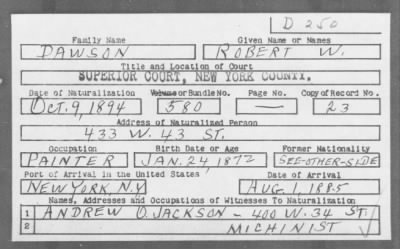 D 250
Family Name Given Name or Names
DAWSON ROBERT W.
Title and Location of Court
SUPERIOR COURT, NEW YORK COUNTY.
Date of Naturalization Volume or Bundle No. Page No. Copy of Record No.
OCT. 9, 1894 580 — 23
Address of Naturalized Person
433 W. 43 ST.
Occupation Birth Date or Age Former Nationality
PAINTER JAN. 24, 1872 SEE-OTHER-SIDE
Port of Arrival in the United States Date of Arrival
NEW YORK, N.Y. AUG. 1, 1885
Names, Addresses and Occupations of Witnesses To Naturalization
1 ANDREW O. JACKSON - 400 W. 34 ST.
2 MICHINIST